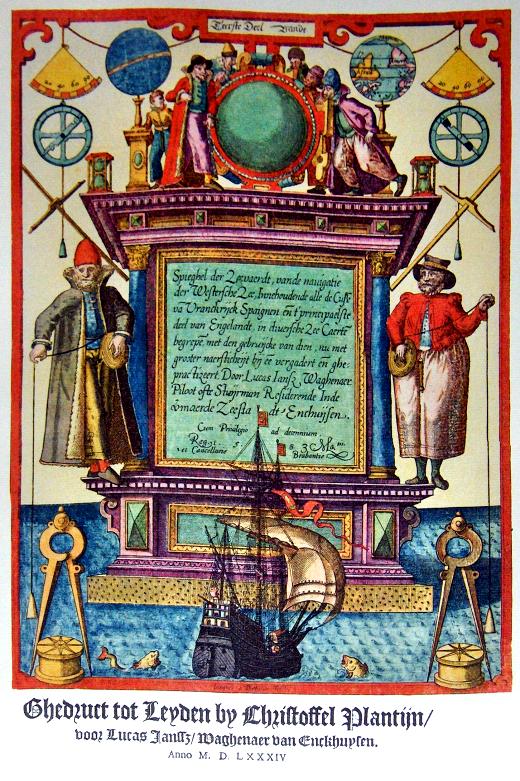 Teerste Deel Vande
Spieghel der Zeevaerdt, vande nauigatie
der Westersche Zee, Innehoudende alle de Custe
va Vranckrijck Spaignen en t' principaelste
deel van Engelandt, in diuersche Zee Caerte
begrepe, met den gebruijcke van dien, nu met
grooter naersticheijt bij ee vergadert en ghe-
practizeert Door Lucas Iansz Waghenaer
Piloot ofte Stuijrman Residerende Inde
vermaerde Zeestadt Enchuijsen.
Cum Priuilegio ad decennium.
Reg.
Cancellarie
Brabantie
Ghedruct tot Leyden by Christoffel Plantijn/
voor Lucas Jansz/Waghenaer van Enckhuysen.
Anno M. D. LXXXIV